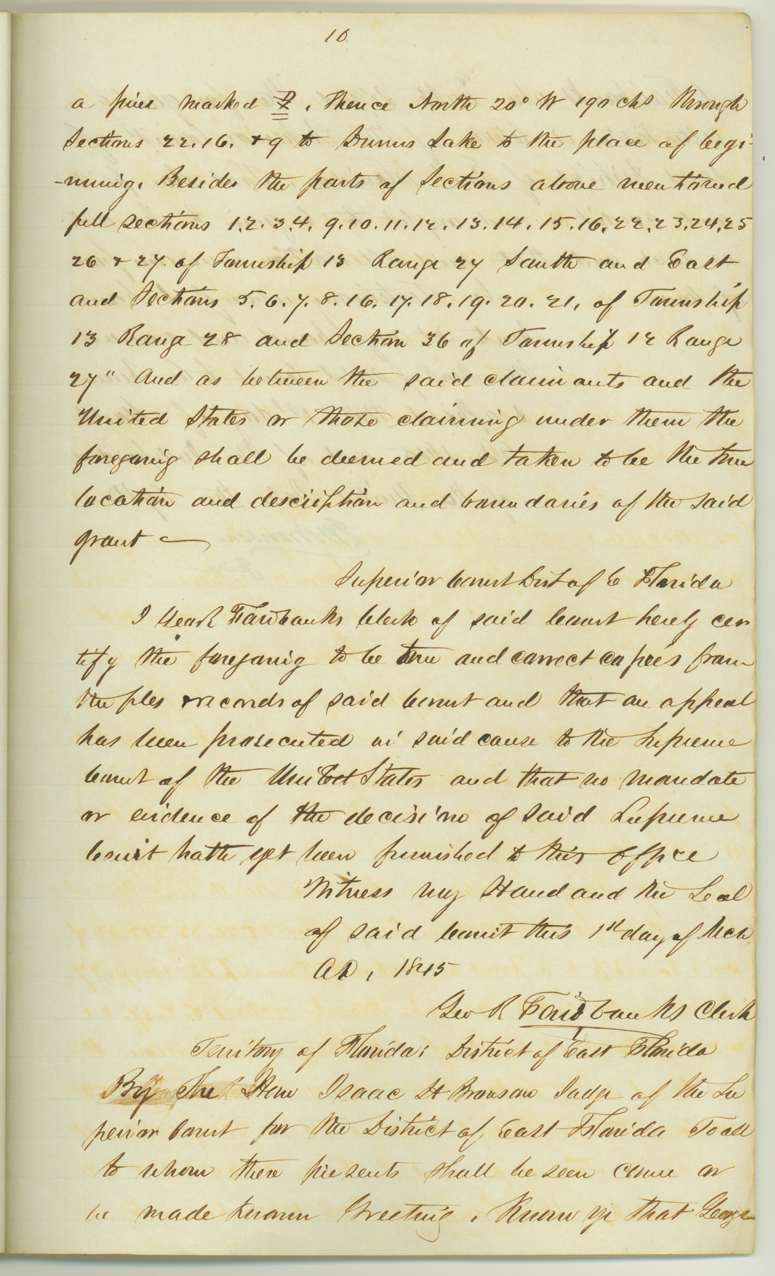 10
a pine marked . Thence North 20° W 190 chs through
Sections 22.16. & 9 to Dunns Lake to the place of begi-
-nning. Besides the parts of Sections above mentioned
full sections 1.2.3.4. 9.10.11.12.13.14.15.16.22.23.24.25
26 & 27 of Township 13 Range 27 South and East
and Sections 5.6.7.8.16.17.18.19.20.21, of Township
13 Range 28 and Section 36 of Township 12 Range
27" And as between the said claimants and the
United States or those claiming under them the
foregoing shall be deemed and taken to be the true
location and description and boundaries of the said
grant —
Superior Court Dist of E Florida
I Geo R Fairbanks Clerk of said Court hereby cer
tify the foregoing to be true and correct copies from
the files & records of said Court and that an appeal
has been prosecuted in said cause to the Supreme
Court of the United States and that no mandate
or evidence of the decision of said Supreme
Court hath yet been furnished to this office
Witness my Hand and the Seal
of said Court this 1st day of Mch
AD, 1845
Geo R Fairbanks Clerk
Territory of Florida: District of East Florida
By The Hon Isaac H Bronson Judge of the Su
perior Court for the District of East Florida To all
to whom these presents shall be seen come or
be made known Greeting, Know ye that George